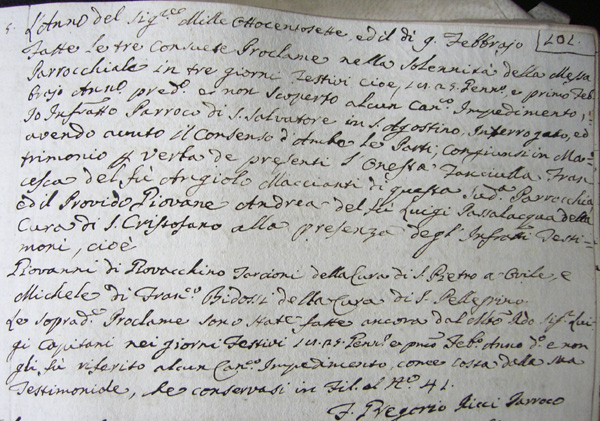 5. L'Anno del Sig.re Mille Ottocentosette, ed il dì 9. Febbrajo 101.
Fatte le tre Consuete Proclame nella Solennità della Messa
Parrocchiale in tre giorni Festivi cioe, 18. 25. Genn.o e primo Feb-
brajo Anno pred.o e non scoperto alcun Can.o Impedimento,
Io Infratto Parroco di S. Salvatore in S. Agostino, Interrogato, ed
avendo avuto il Consenso d'Ambe le Parti, Congiunsi in Ma-
trimonio p verba de presenti l'Onesta Fanciulla Fran-
cesca del fù Angiolo Maccianti di questa Sud.a Parrocchia
ed il Provido Giovane Andrea del fù Luigi Passalacqua della
Cura di S. Cristofano alla presenza degl'Infratti Testi-
moni, cioè
Giovanni di Giovacchino Tarcioni della Cura di S. Pietro a Ovile, e
Michele di Fran.co Bidossi della Cura di S. Pellegrino.
Le soprad.e Proclame sono state fatte ancora dal Rdo Sig.r Lui-
gi Capitani nei giorni Festivi 18. 25. Genn.o e p.mo Feb.o Anno d.o e non
gli fù riferito alcun Can.o Impedimento, come costa dalla sua
Testimoniale, che conservasi in Fil. al N.o 41.
F. Gregorio Ricci Parroco